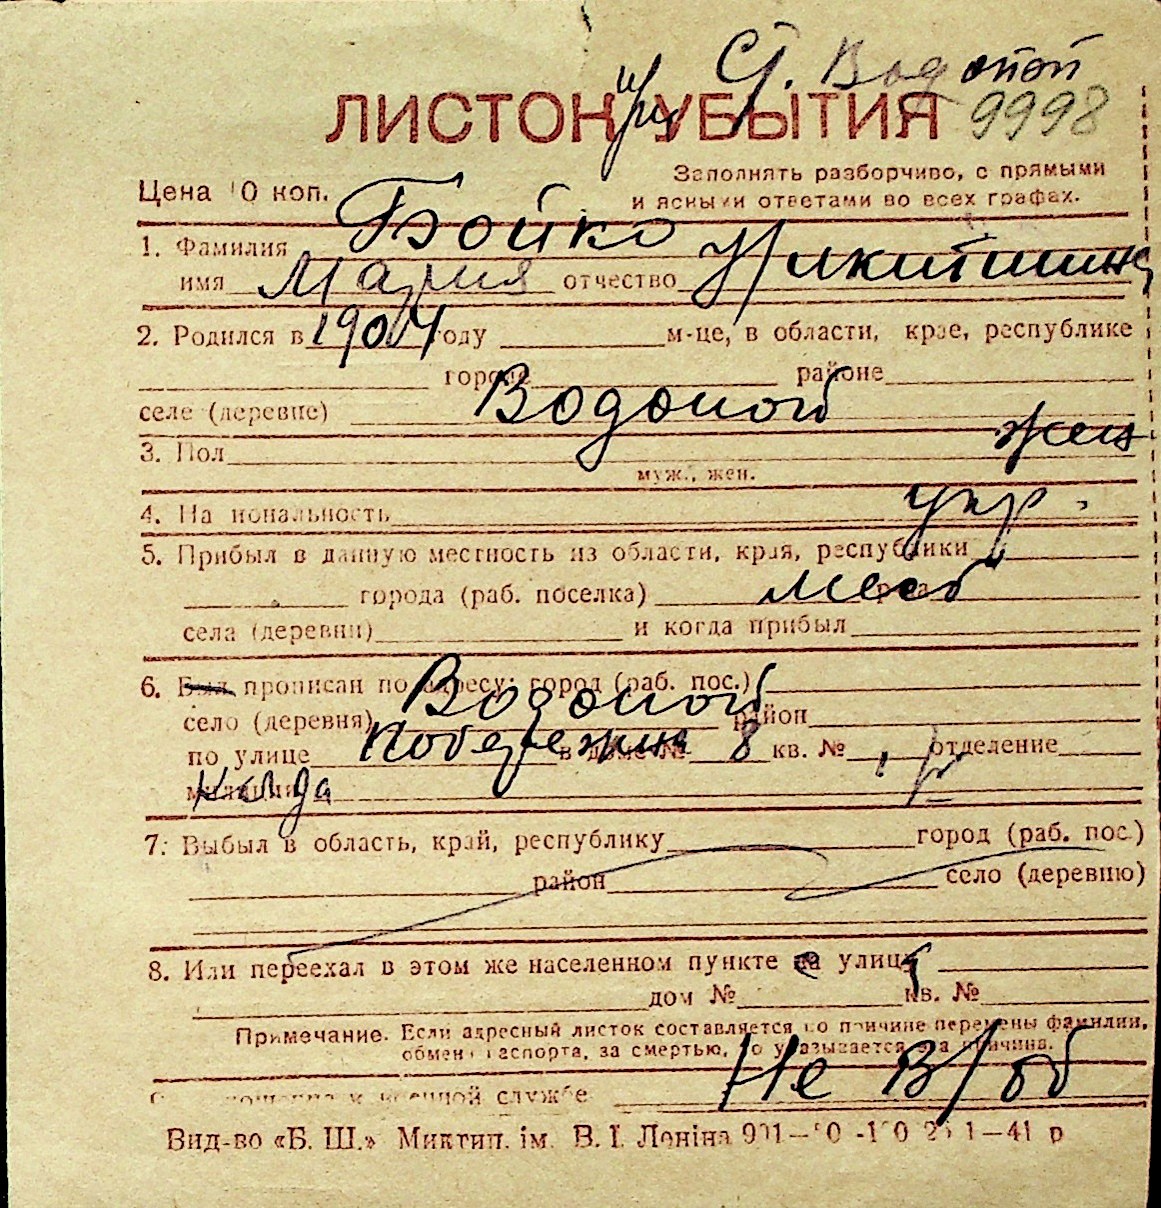 ст. Водопой
ЛИСТОК УБЫТИЯ 9998
Заполнять разборчиво, с прямыми
Цена 10 коп. и ясными ответами во всех графах.
1. Фамилия Бойко
имя Мария отчество Никитишна
2. Родился в 1904 году м-це, в области, крае, республике
городе районе
селе (деревне) Водопой
3. Пол жен
муж., жен.
4. Национальность укр.
5. Прибыл в данную местность из области, края, республики
города (раб. поселка)
села (деревни) и когда прибыл
6. Был прописан по адресу: город (раб. пос.)
село (деревня) Водопой район
по улице в доме № 8 кв. № отделение
милиции
7. Выбыл в область, край, республику город (раб. пос.)
район село (деревню)
8. Или переехал в этом же населенном пункте на улицу
дом № кв. №
Примечание. Если адресный листок составляется по причине перемены фамилии,
обмена паспорта, за смертью, то указывается эта причина.
военной службе Не в/об
Вид-во «Б. Ш.» Миктип. ім. В. І. Леніна